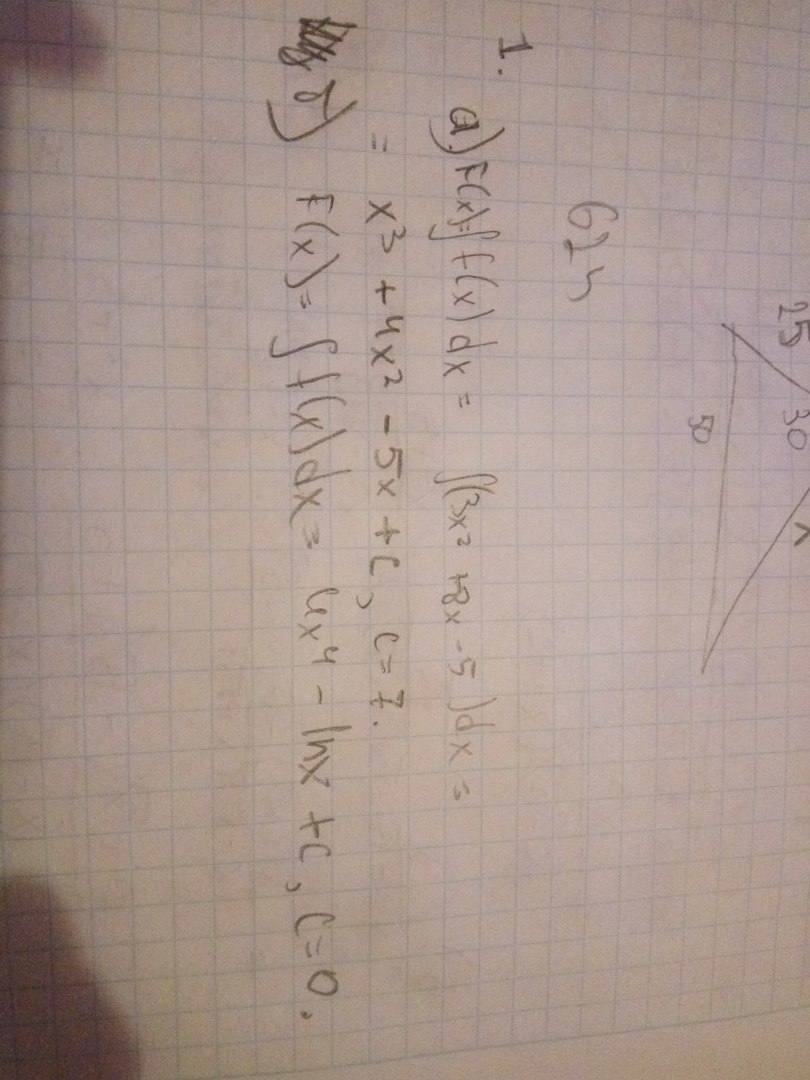 25 30
50
1. а) F(x)=∫f(x)dx = ∫(3x² +8x -5)dx =
= x³ + 4x² - 5x + c, c=7.
б) F(x)= ∫f(x)dx = 4x⁴ - lnx + c, c=0.